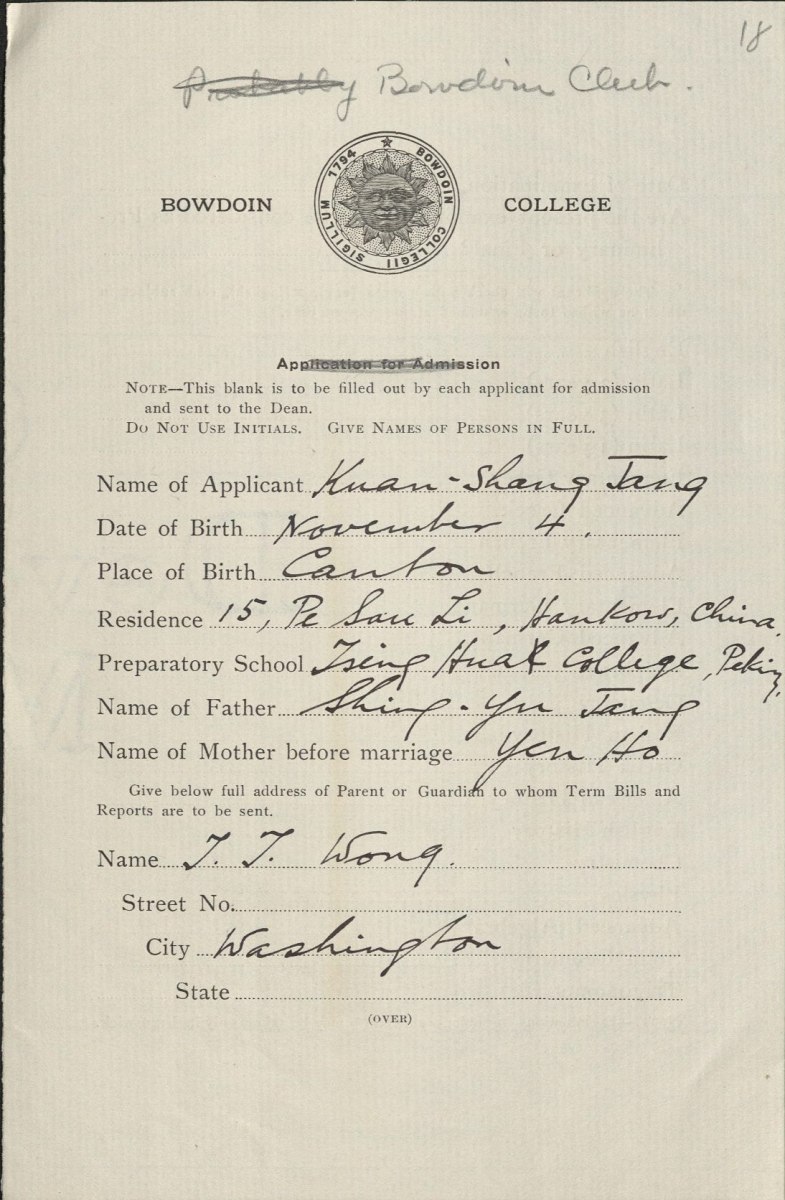 18
Probably Bowdoin Club.
BOWDOIN COLLEGE
SIGILLUM 1794 BOWDOIN COLLEGII
Application for Admission
NOTE—This blank is to be filled out by each applicant for admission
and sent to the Dean.
DO NOT USE INITIALS. GIVE NAMES OF PERSONS IN FULL.
Name of Applicant Kuan-Shang Tang
Date of Birth November 4.
Place of Birth Canton
Residence 15, Pe Sau Li, Hankow, China.
Preparatory School Tsing Hua College, Peking.
Name of Father Shing-Yu Tang
Name of Mother before marriage Yen Ho
Give below full address of Parent or Guardian to whom Term Bills and
Reports are to be sent.
Name T. T. Wong.
Street No.
City Washington
State
(OVER)